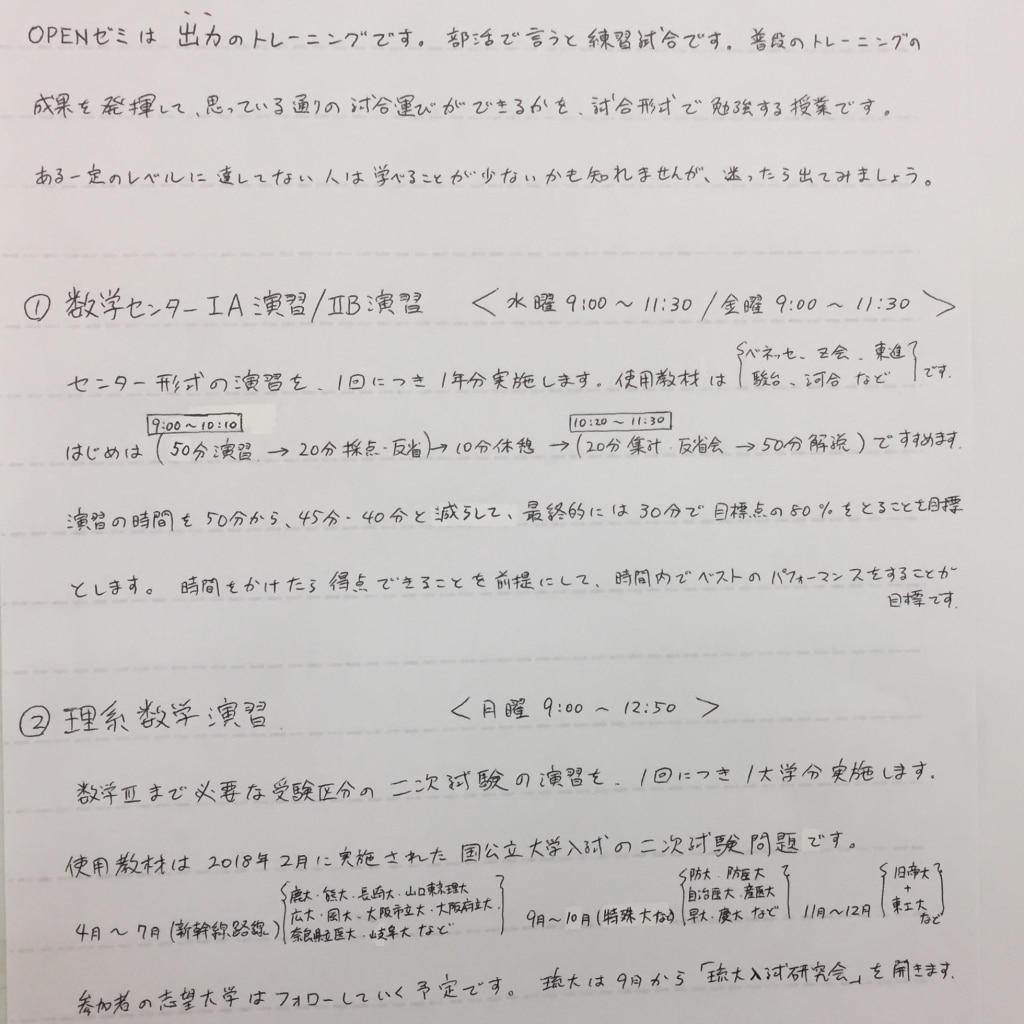 OPENゼミは 出力のトレーニングです。部活で言うと練習試合です。普段のトレーニングの
成果を発揮して、思っている通りの試合運びができるかを、試合形式で勉強する授業です。
ある一定のレベルに達してない人は学べることが少ないかも知れませんが、迷ったら出てみましょう。
① 数学センターⅠA演習/ⅡB演習 <水曜 9:00～11:30 / 金曜 9:00～11:30>
ベネッセ、Z会、東進
センター形式の演習を、1回につき1年分実施します。使用教材は 駿台、河合 など です。
9:00～10:10 10:20～11:30
はじめは(50分演習 → 20分採点・反省)→10分休憩 →(20分集計・反省会 → 50分解説)ですすめます。
演習の時間を50分から、45分・40分と減らして、最終的には30分で目標点の80%をとることを目標
とします。時間をかけたら得点できることを前提にして、時間内でベストのパフォーマンスをすることが
目標です。
② 理系数学演習 <月曜 9:00～12:50>
数学Ⅲまで必要な受験区分の二次試験の演習を、1回につき1大学分実施します。
使用教材は2018年2月に実施された国公立大学入試の二次試験問題です。
鹿大・熊大・長崎大・山口東京理大 防大・防医大 旧帝大
広大・岡大・大阪市立大・大阪府立大 自治医大・産医大 +
4月～7月(新幹線路線) 奈良県立医大・岐阜大 など 9月～10月(特殊大など) 早大・慶大 など 11月～12月 東工大
など
参加者の志望大学はフォローしていく予定です。琉大は9月から「琉大入試研究会」を開きます。